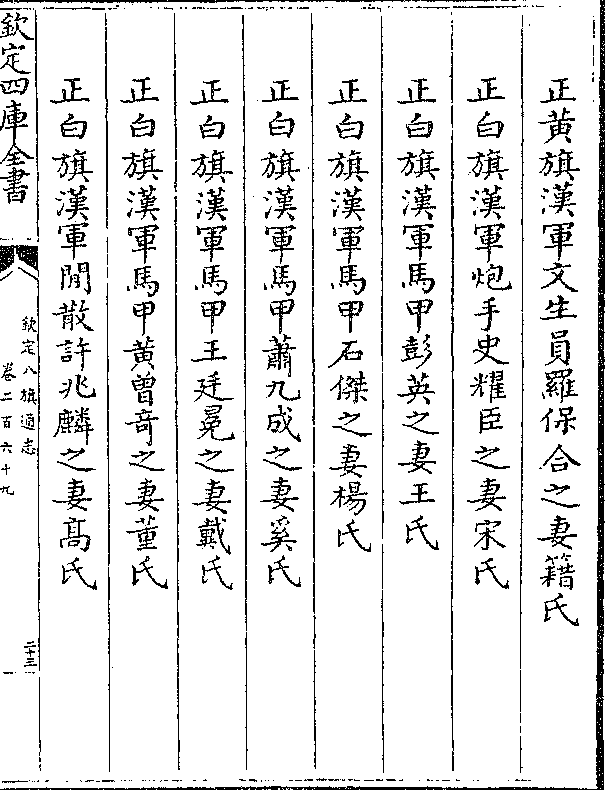 正黃旗漢軍文生員羅保合之妻籍氏
正白旗漢軍炮手史耀臣之妻宋氏
正白旗漢軍馬甲彭英之妻王氏
正白旗漢軍馬甲石傑之妻楊氏
正白旗漢軍馬甲蕭九成之妻奚氏
正白旗漢軍馬甲王廷冕之妻戴氏
正白旗漢軍馬甲黃曾竒之妻董氏
正白旗漢軍閒散許兆麟之妻髙氏
欽定四庫全書
欽定八旗通志
卷二百六十九
二十三